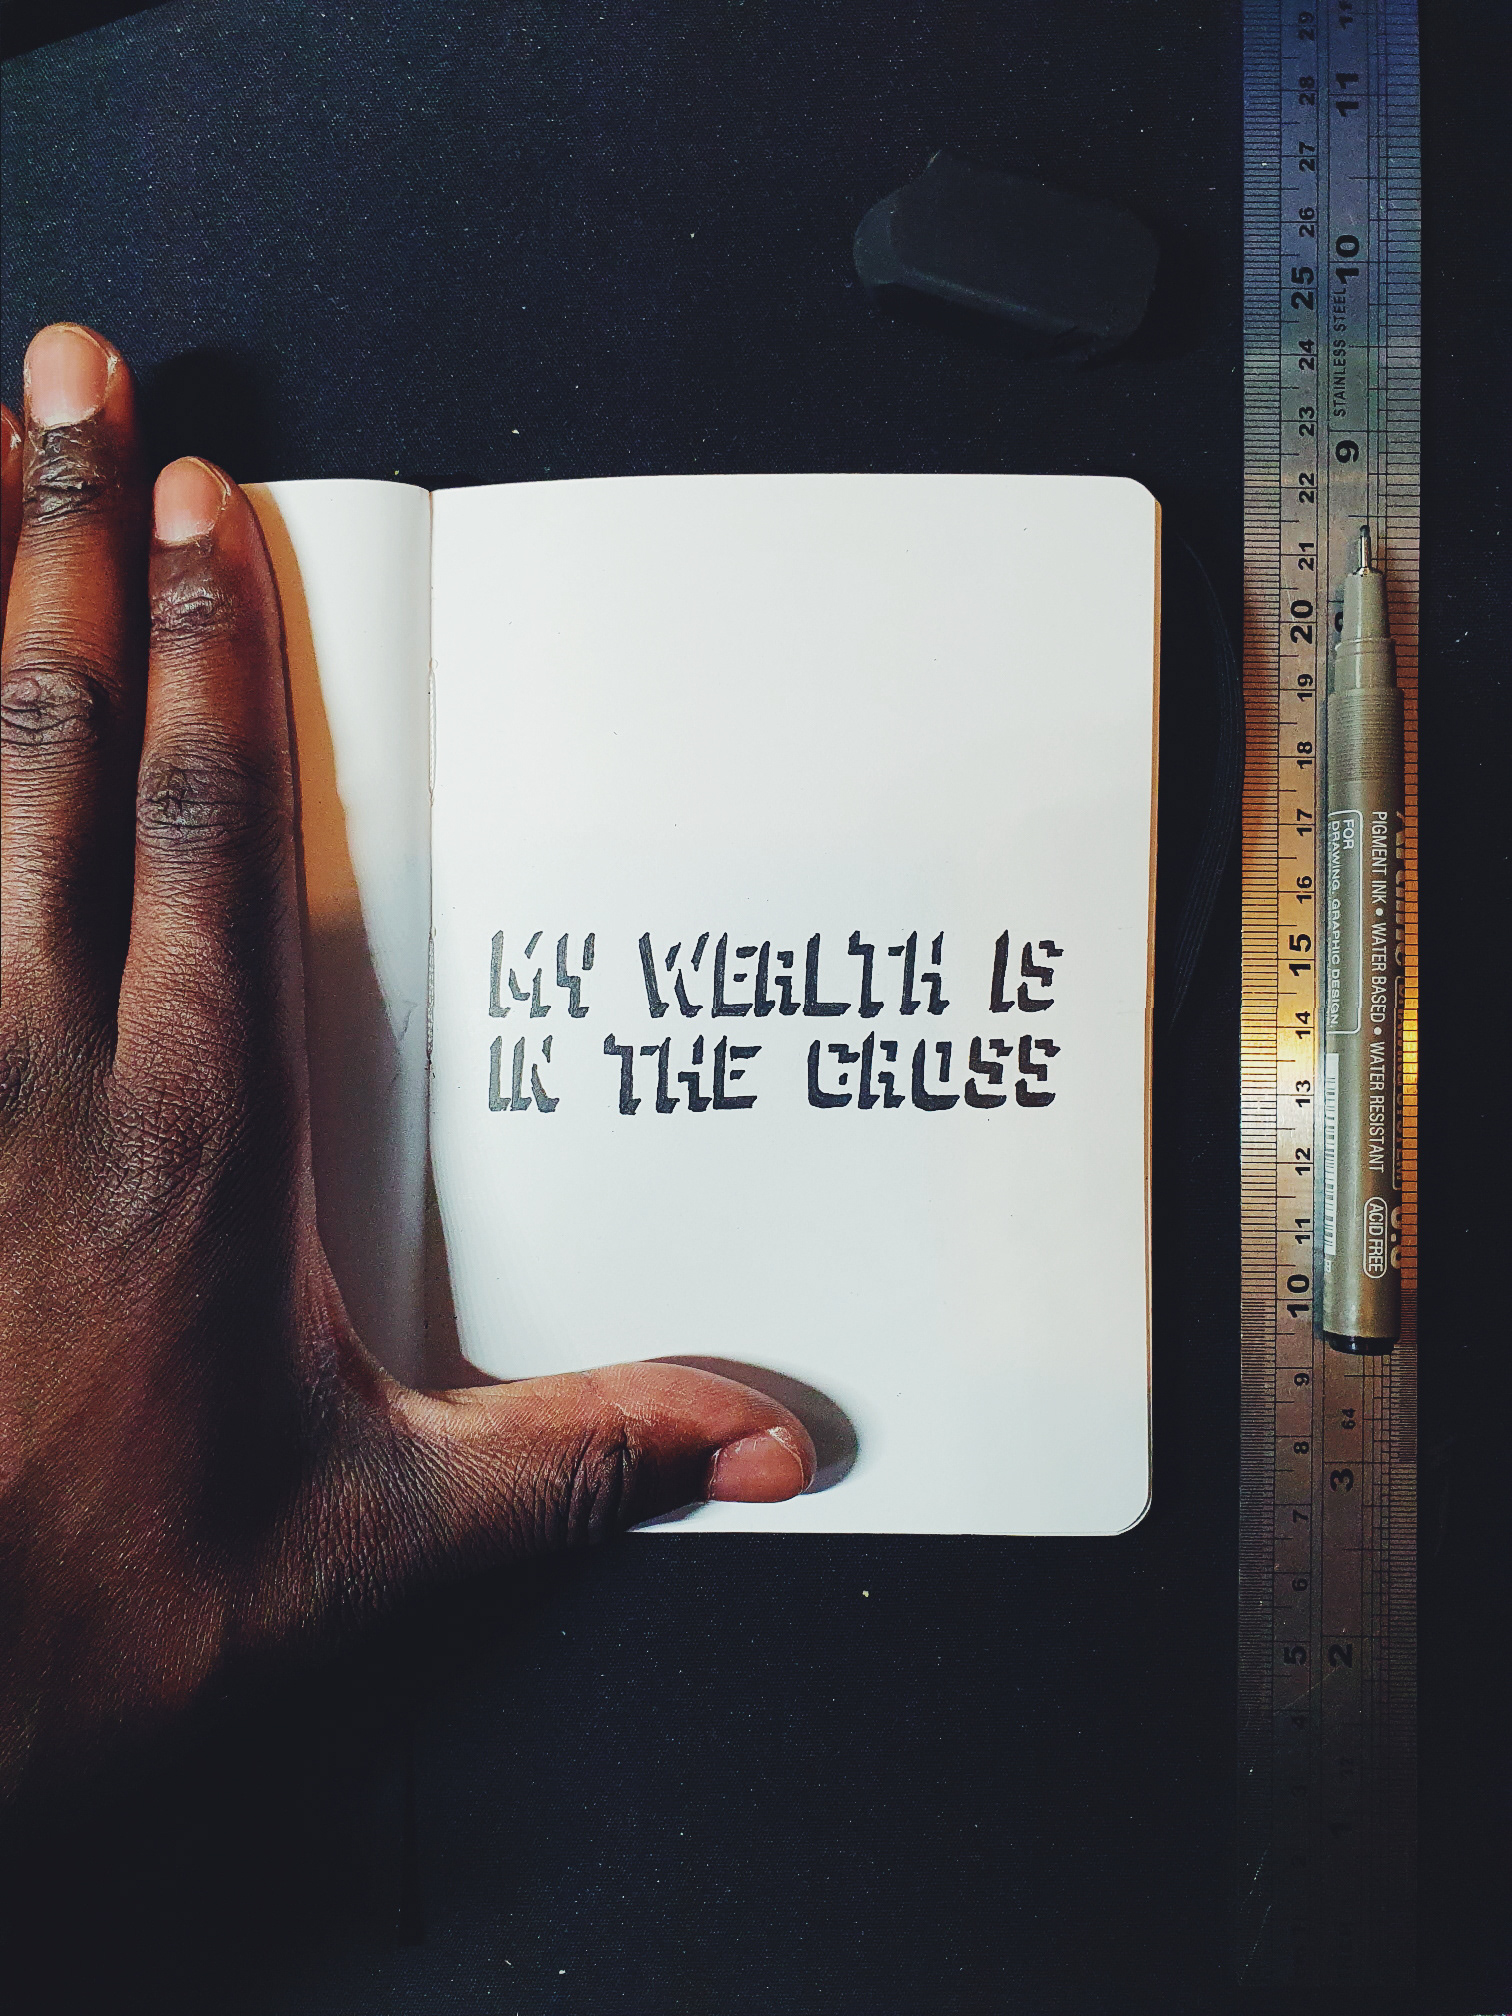 MY WEALTH IS
IN THE CROSS
PIGMENT INK • WATER BASED • WATER RESISTANT ACID FREE
FOR
DRAWING, GRAPHIC DESIGN,
STAINLESS STEEL
29
28
27
26
25
24
23
22
21
20
19
18
17
16
15
14
13
12
11
10
9
8
7
6
5
4
3
11
10
9
64
3
2
1